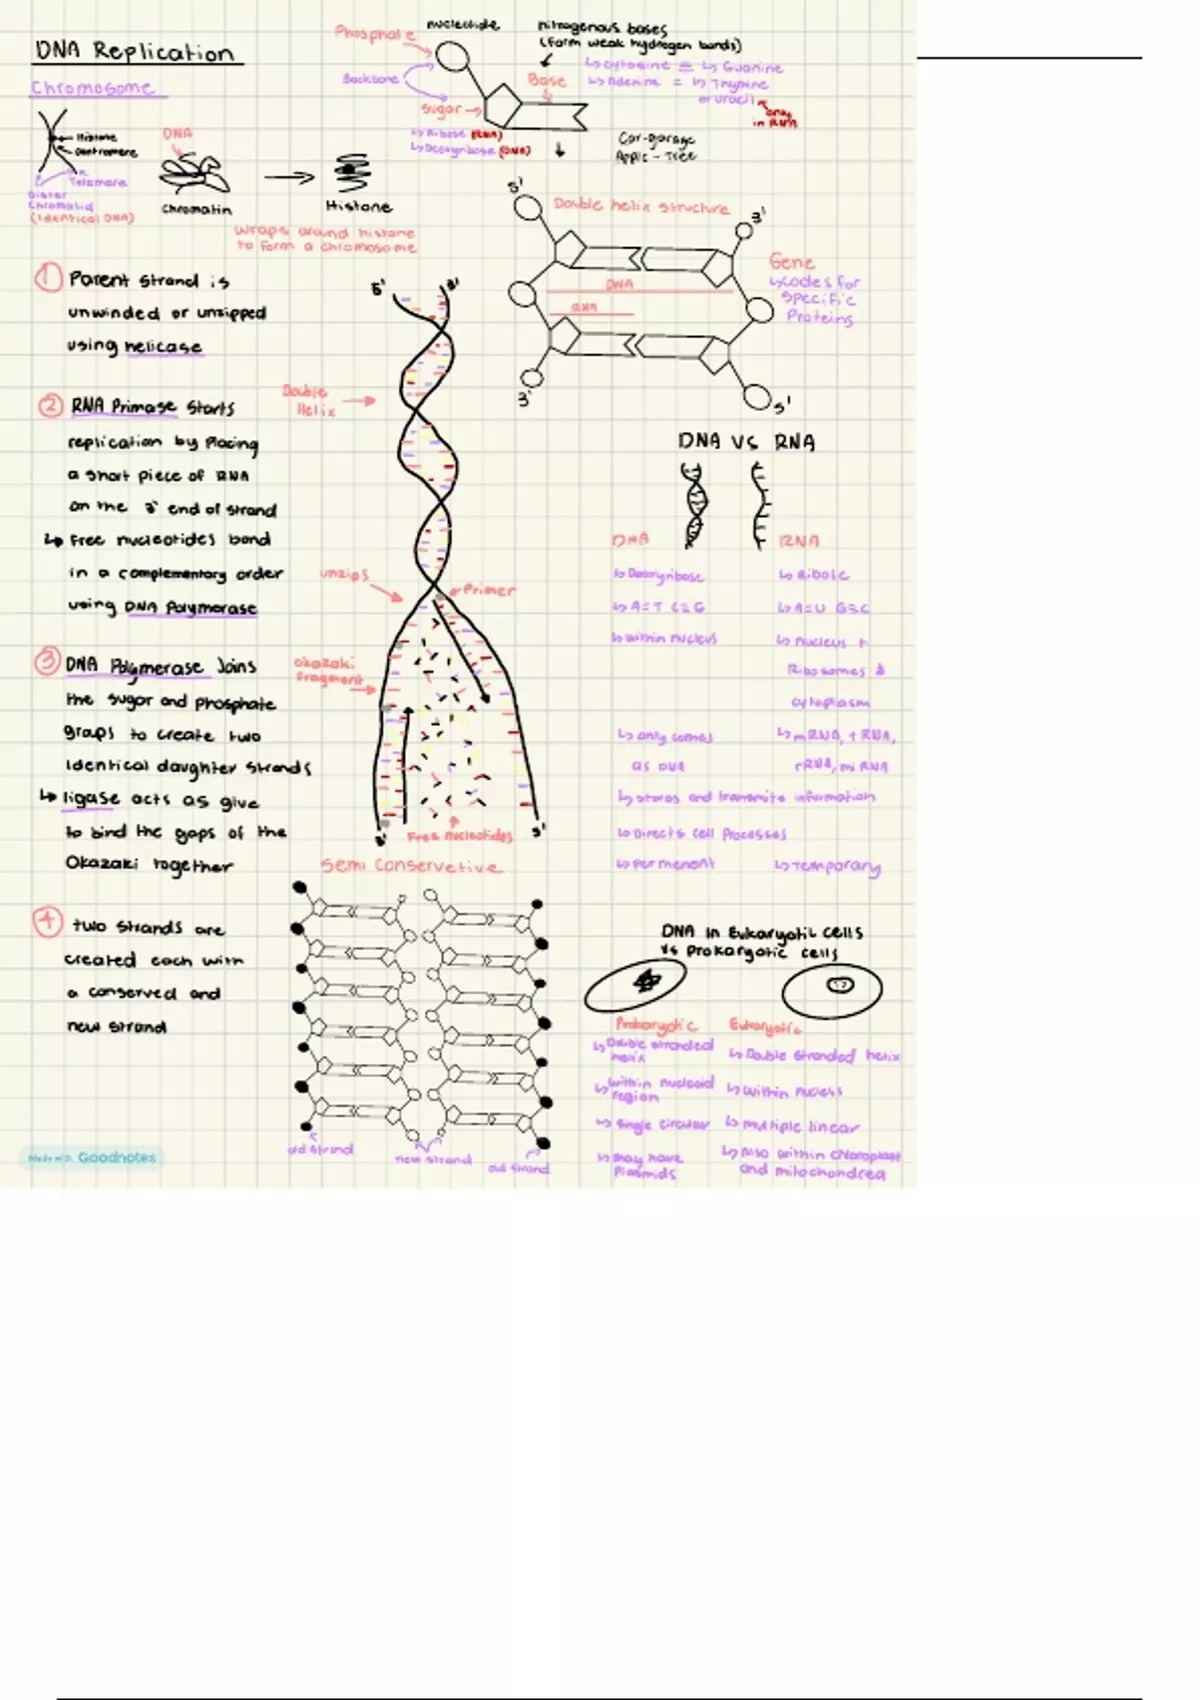 DNA Replication
Chromosome
Histone
Centromere
Telomere
Sister
Chromatid
(Identical DNA)
DNA
Chromatin
Histone
wraps around histone
to form a chromosome
nucleotide
Phosphate
Backbone
sugar
↳ Ribose (RNA)
↳ Deoxyribose (DNA)
Base
nitrogenous bases
(form weak hydrogen bonds)
↳ cytosine ≡ ↳ Guanine
↳ Adenine = ↳ Thymine
or uracil
only
in RNA
Car-garage
Apple - Tree
5'
Double helix structure
3'
DNA
RNA
3'
5'
Gene
↳ codes for
specific
Proteins
① Parent strand is
unwinded or unzipped
using helicase
② RNA Primase starts
replication by placing
a short piece of RNA
on the 3' end of strand
↳ Free nucleotides bond
in a complementary order
using DNA Polymerase
③ DNA Polymerase Joins
the sugar and phosphate
groups to create two
identical daughter strands
↳ ligase acts as glue
to bind the gaps of the
Okazaki together
④ two strands are
created each with
a conserved and
new strand
5'
3'
Double
Helix
unzips
Primer
Okazaki
fragment
Free nucleotides
5'
semi conservetive
old strand
new strand
old strand
DNA VS RNA
DNA
RNA
↳ Deoxyribose
↳ Ribose
↳ A=T C≡G
↳ A=U G≡C
↳ within nucleus
↳ nucleus +
Ribosomes &
cytoplasm
↳ only comes
as DNA
↳ mRNA, tRNA,
rRNA, miRNA
↳ stores and transmits information
↳ Directs cell Processes
↳ permenent
↳ Temporary
DNA in Eukaryotic cells
vs prokaryotic cells
Prokaryotic
Eukaryotic
↳ Double stranded
helix
↳ Double stranded helix
↳ within nucleoid
region
↳ within nucleus
↳ single circular
↳ multiple linear
↳ may have
Plasmids
↳ Also within chloroplast
and mitochondrea
Made with Goodnotes